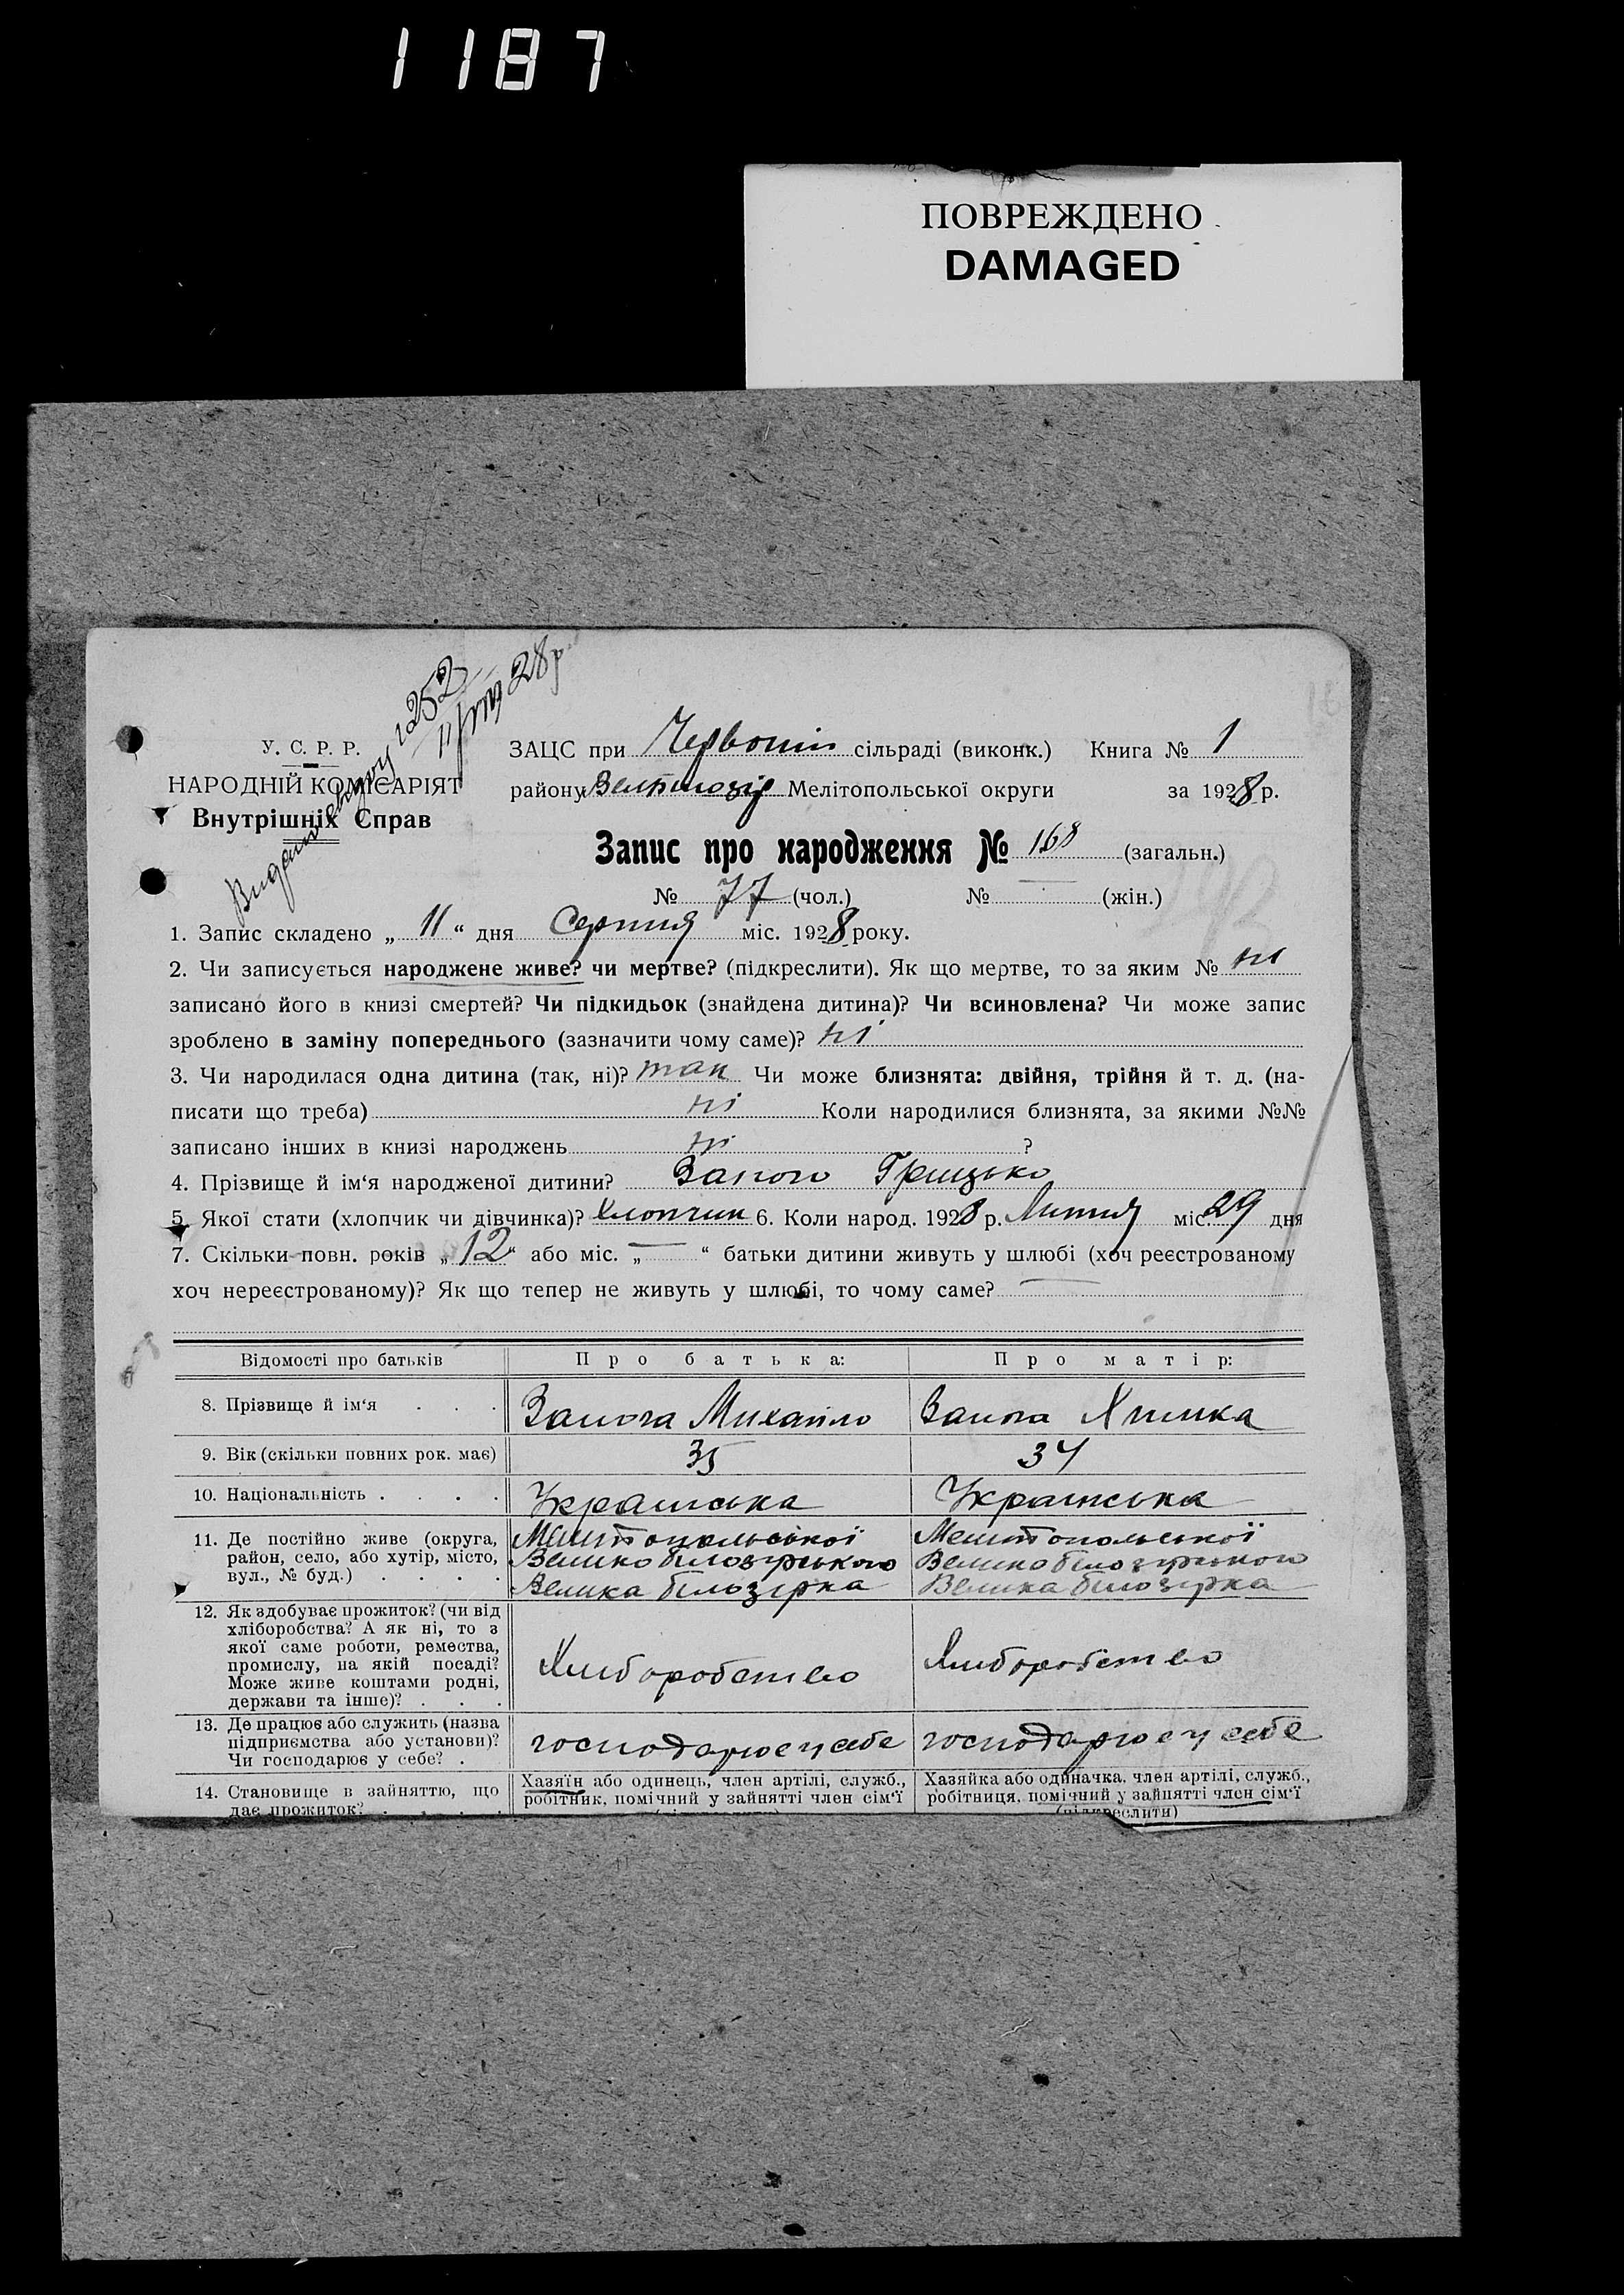 1187
ПОВРЕЖДЕНО
DAMAGED
252
28р
У. С. Р. Р.
НАРОДНІЙ КОМІСАРІЯТ
Внутрішніх Справ
ЗАЦС при Червоній сільраді (виконк.) Книга № 1
району Мелітопольської округи за 1928 р.
Запис про народження № 168 (загальн.)
№ 77 (чол.) № — (жін.)
1. Запис складено „ 11 “ дня Серпня міс. 1928 року.
2. Чи записується народжене живе? чи мертве? (підкреслити). Як що мертве, то за яким № ні
записано його в книзі смертей? Чи підкидьок (знайдена дитина)? Чи всиновлена? Чи може запис
зроблено в заміну попереднього (зазначити чому саме)? ні
3. Чи народилася одна дитина (так, ні)? так Чи може близнята: двійня, трійня й т. д. (на-
писати що треба) ні Коли народилися близнята, за якими №№
записано інших в книзі народжень ні ?
4. Прізвище й ім‘я народженої дитини? Грицько
5. Якої стати (хлопчик чи дівчинка)? Хлопчик 6. Коли народ. 1928 р. Липня міс. 29 дня
7. Скільки повн. років „ 12 “ або міс. „ — “ батьки дитини живуть у шлюбі (хоч реєстрованому
хоч нереєстрованому)? Як що тепер не живуть у шлюбі, то чому саме? —
Відомості про батьків Про батька: Про матір:
8. Прізвище й ім‘я . . . Михайло Химка
9. Вік (скільки повних рок. має) 35 34
10. Національність . . . . Українська Українська
11. Де постійно живе (округа, Мелітопольської Мелітопольської
район, село, або хутір, місто, Великобілозірського Великобілозірського
вул., № буд.) . . . . Велика білозірка Велика білозірка
12. Як здобуває прожиток? (чи від
хліборобства? А як ні, то з
якої саме роботи, ремества,
промислу, на якій посаді? Хліборобство Хліборобство
Може живе коштами родні,
держави та інше)? . . .
13. Де працює або служить (назва
підприємства або установи)? господарює у себе господарює у себе
Чи господарює у себе? .
14. Становище в зайняттю, що Хазяїн або одинець, член артілі, служб., Хазяйка або одиначка, член артілі, служб.,
дає прожиток? . . . . робітник, помічний у зайнятті член сім‘ї робітниця, помічний у зайнятті член сім‘ї
(підкреслити)